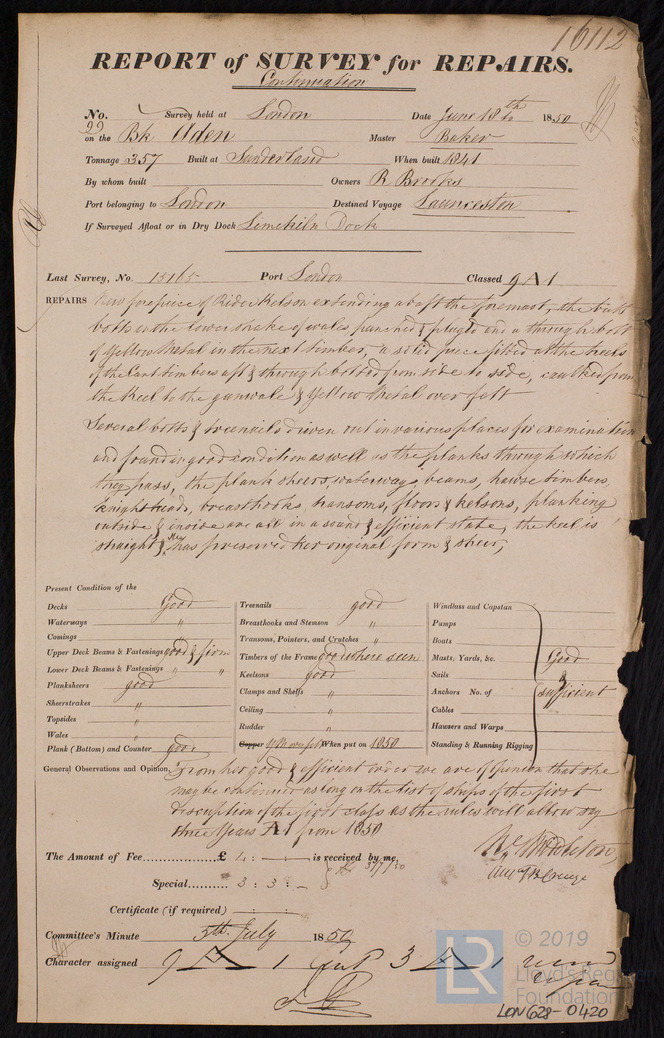 16112
REPORT of SURVEY for REPAIRS.
Continuation
No. 99 Survey held at London Date June 18th 1850
on the Bk Aden Master Baker
Tonnage 357 Built at Sunderland When built 1841
By whom built Owners R Brooks
Port belonging to London Destined Voyage Launceston
If Surveyed Afloat or in Dry Dock Limekiln Dock
Last Survey, No. 15165 Port London Classed 9 A 1
REPAIRS New forepiece of Rider Kelson extending abaft the foremast, the butt
bolts in the lower strake of wales punched & pluged and a through bolt
of Yellow Metal in the next timber, a solid piece fitted at the heels
of the Cant timbers aft & through bolted from side to side, caulked from
the Keel to the gunwale & Yellow Metal over felt
Several bolts & treenails driven out in various places for examination
and found in good condition as well as the planks through which
they pass, the plank sheers, waterways, beams, hawse timbers,
knightheads, breasthooks, transoms, floors & kelsons, planking
outside & inside are all in a sound & efficient state, the keel is
straight & she has preserved her original form & sheer,
Present Condition of the
Decks Good
Waterways "
Comings
Upper Deck Beams & Fastenings good & firm
Lower Deck Beams & Fastenings " "
Planksheers good
Sheerstrakes "
Topsides "
Wales "
Plank (Bottom) and Counter good
Treenails good
Breasthooks and Stemson "
Transoms, Pointers, and Crutches "
Timbers of the Frame good where seen
Keelsons good
Clamps and Shelfs "
Ceiling "
Rudder "
Copper YM over felt When put on 1850
Windlass and Capstan
Pumps
Boats
Masts, Yards, &c. Good
Sails &
Anchors No. of sufficient
Cables
Hawsers and Warps
Standing & Running Rigging
General Observations and Opinion, From her good & efficient order we are of opinion that she
may be continued as long on the list of ships of the first
discription of the first class as the rules will allow say
three Years A 1 from 1850
The Amount of Fee £ 1 : - : - is received by me,
Special 3 : 3 : -
Certificate (if required) : :
Committee's Minute 5th July 1850
Character assigned 9 A 1 Cont 3 A 1
© 2019
LR
Lloyd's Register
Foundation
LON628-0420